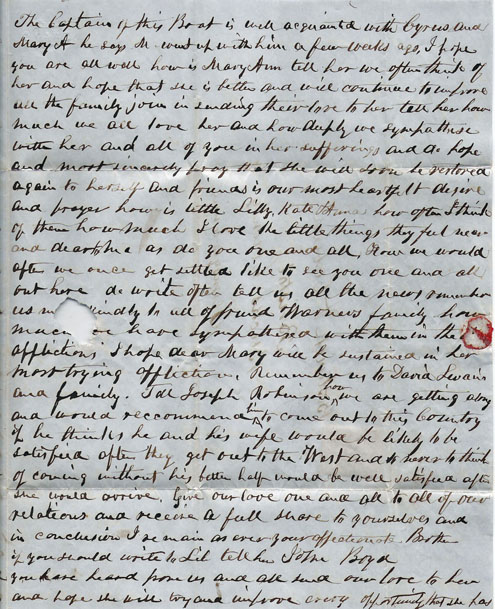 The Captain of this Boat is well acquainted with Cyrus and
Mary A he says M. went up with him a few weeks ago, I hope
you are all well how is Mary Ann tell her we often think of
her and hope that she is better and will continue to improve
all the family join in sending their love to her tell her how
much we all love her and how deeply we sympathise
with her and all of you in her sufferings and do hope
and most sincerely pray that she will soon be restored
again to herself and friends is our most heartfelt desire
and prayer how is little Lilly, Kate & Anna how often I think
of them how much I love the little things they feel near
and dear to me as do you one and all, How we would
after we once get settled like to see you one and all
out here do write often tell us all the news remember
us kindly to all of friend Warners family how
much we have sympathised with them in the
afflictions I hope dear Mary will be sustained in her
most trying affliction. Remember us to David Swain
and family. Tell Joseph Robinson how we are getting along
and would reccommend him to come out to this Country
if he thinks he and his wife would be likely to be
satisfied after they get out to the West and to never to think
of coming without his better half would be well satisfied after
she would arrive. Give our love one and all to all of our
relations and receive a full share to yourselves and
in conclusion I remain as ever your affectionate Broth
if you should write to Lib tell her John Boyd
you have heard from us and all send our love to her
and hope she will try and improve every opportunity that she has